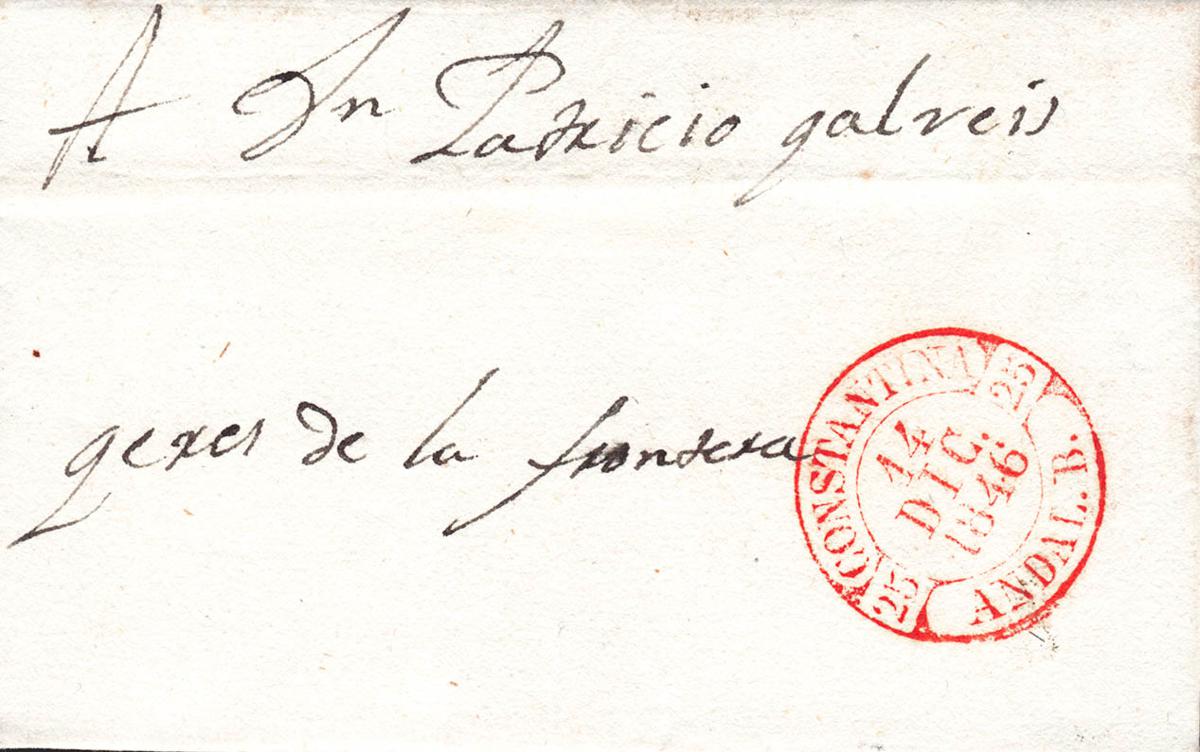 A Dn Patricio galveis
gexes de la frontera
CONSTANTINA
25
14
DIC.
1846.
25
ANDAL. B.